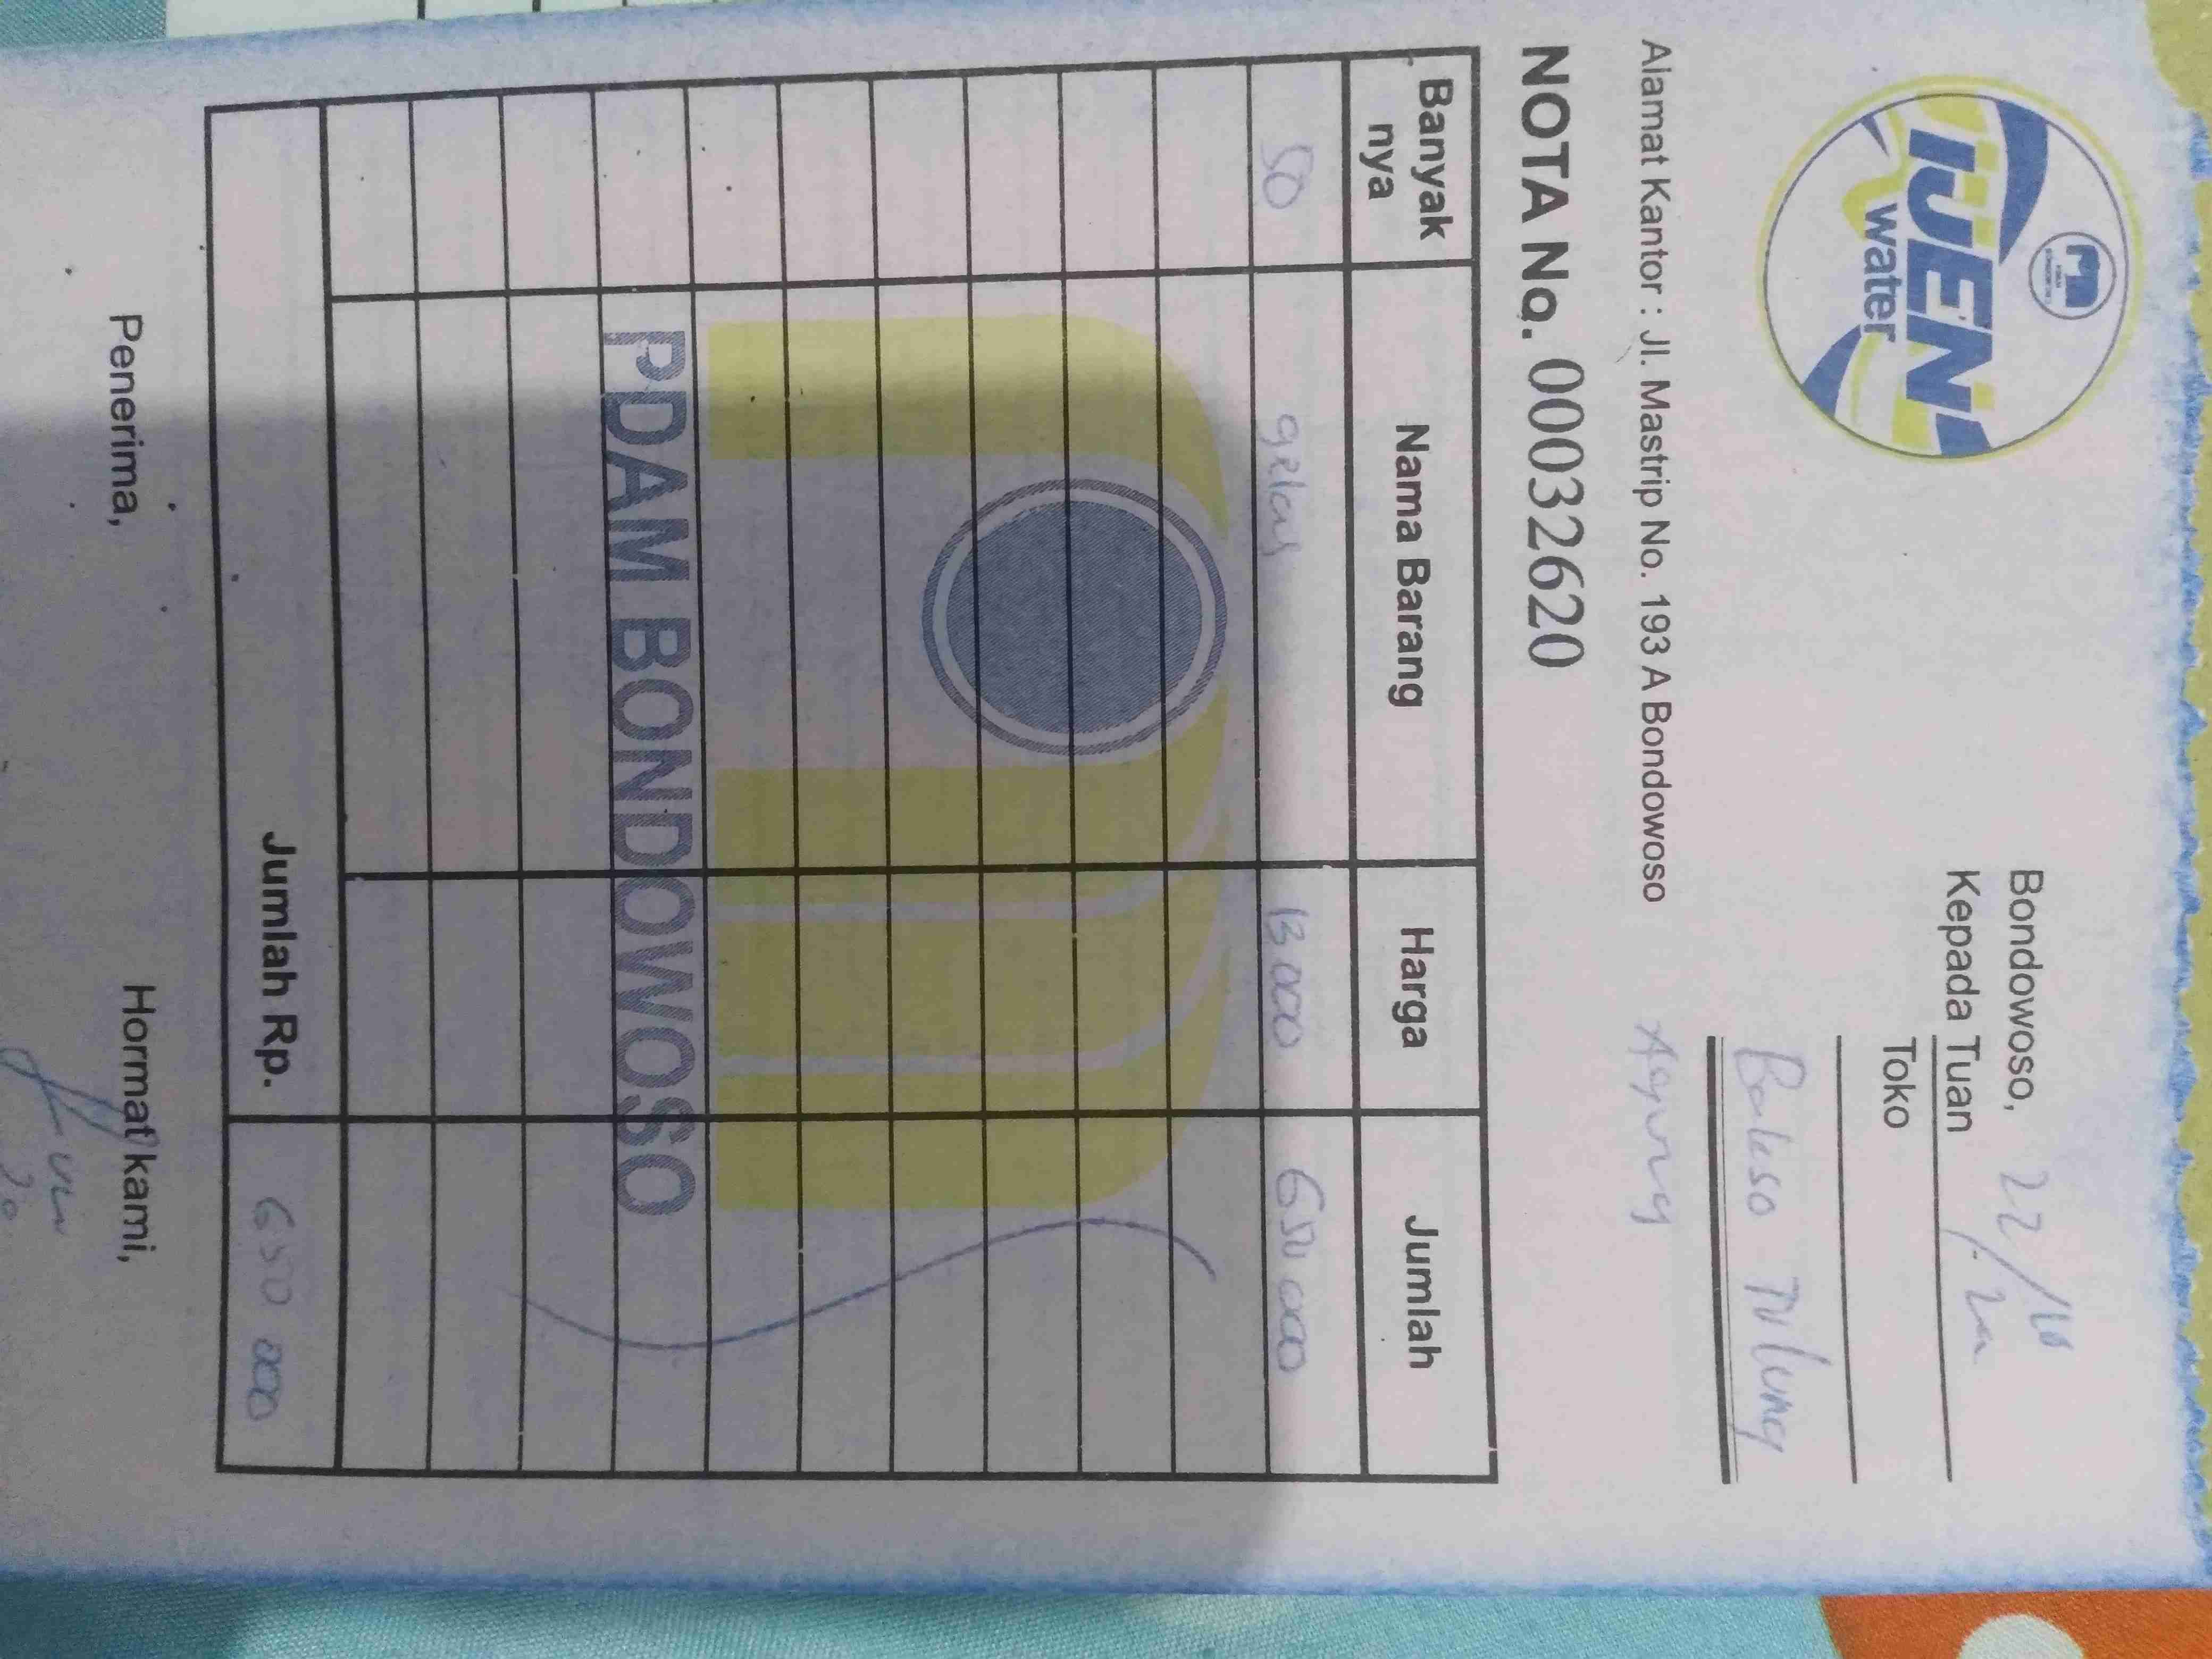 IJEN
water
Bondowoso, 22/10
Kepada Tuan
Toko
Bakso
Agung
Alamat Kantor : Jl. Mastrip No. 193 A Bondowoso
NOTA No. 00032620
Banyak nya Nama Barang Harga Jumlah
50 gelas 13 000 650 000
PDAM BONDOWOSO
Jumlah Rp. 650 000
Penerima, Hormat kami,